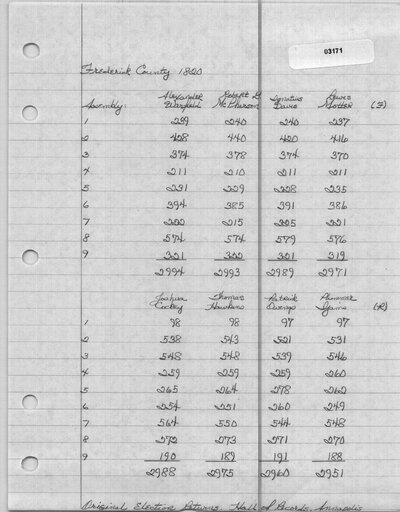 03171
Frederick County 1820
Alexander Robert G. Ignatius Lewis
Assembly: Warfield McPherson Davis Motter (F)
1 239 240 240 237
2 428 440 420 416
3 374 378 374 370
4 211 210 211 211
5 231 229 228 235
6 394 385 391 386
7 222 215 225 221
8 574 574 579 576
9 321 322 321 319
2994 2993 2989 2971
Joshua Thomas Patrick Plummer
Cockey Hawkins Owings Ijams (R)
1 98 98 97 97
2 538 543 521 531
3 548 548 539 546
4 259 259 259 260
5 265 264 278 262
6 254 251 260 249
7 564 550 544 548
8 272 273 271 270
9 190 189 191 188
2988 2975 2960 2951
Original Election Returns, Hall of Records, Annapolis